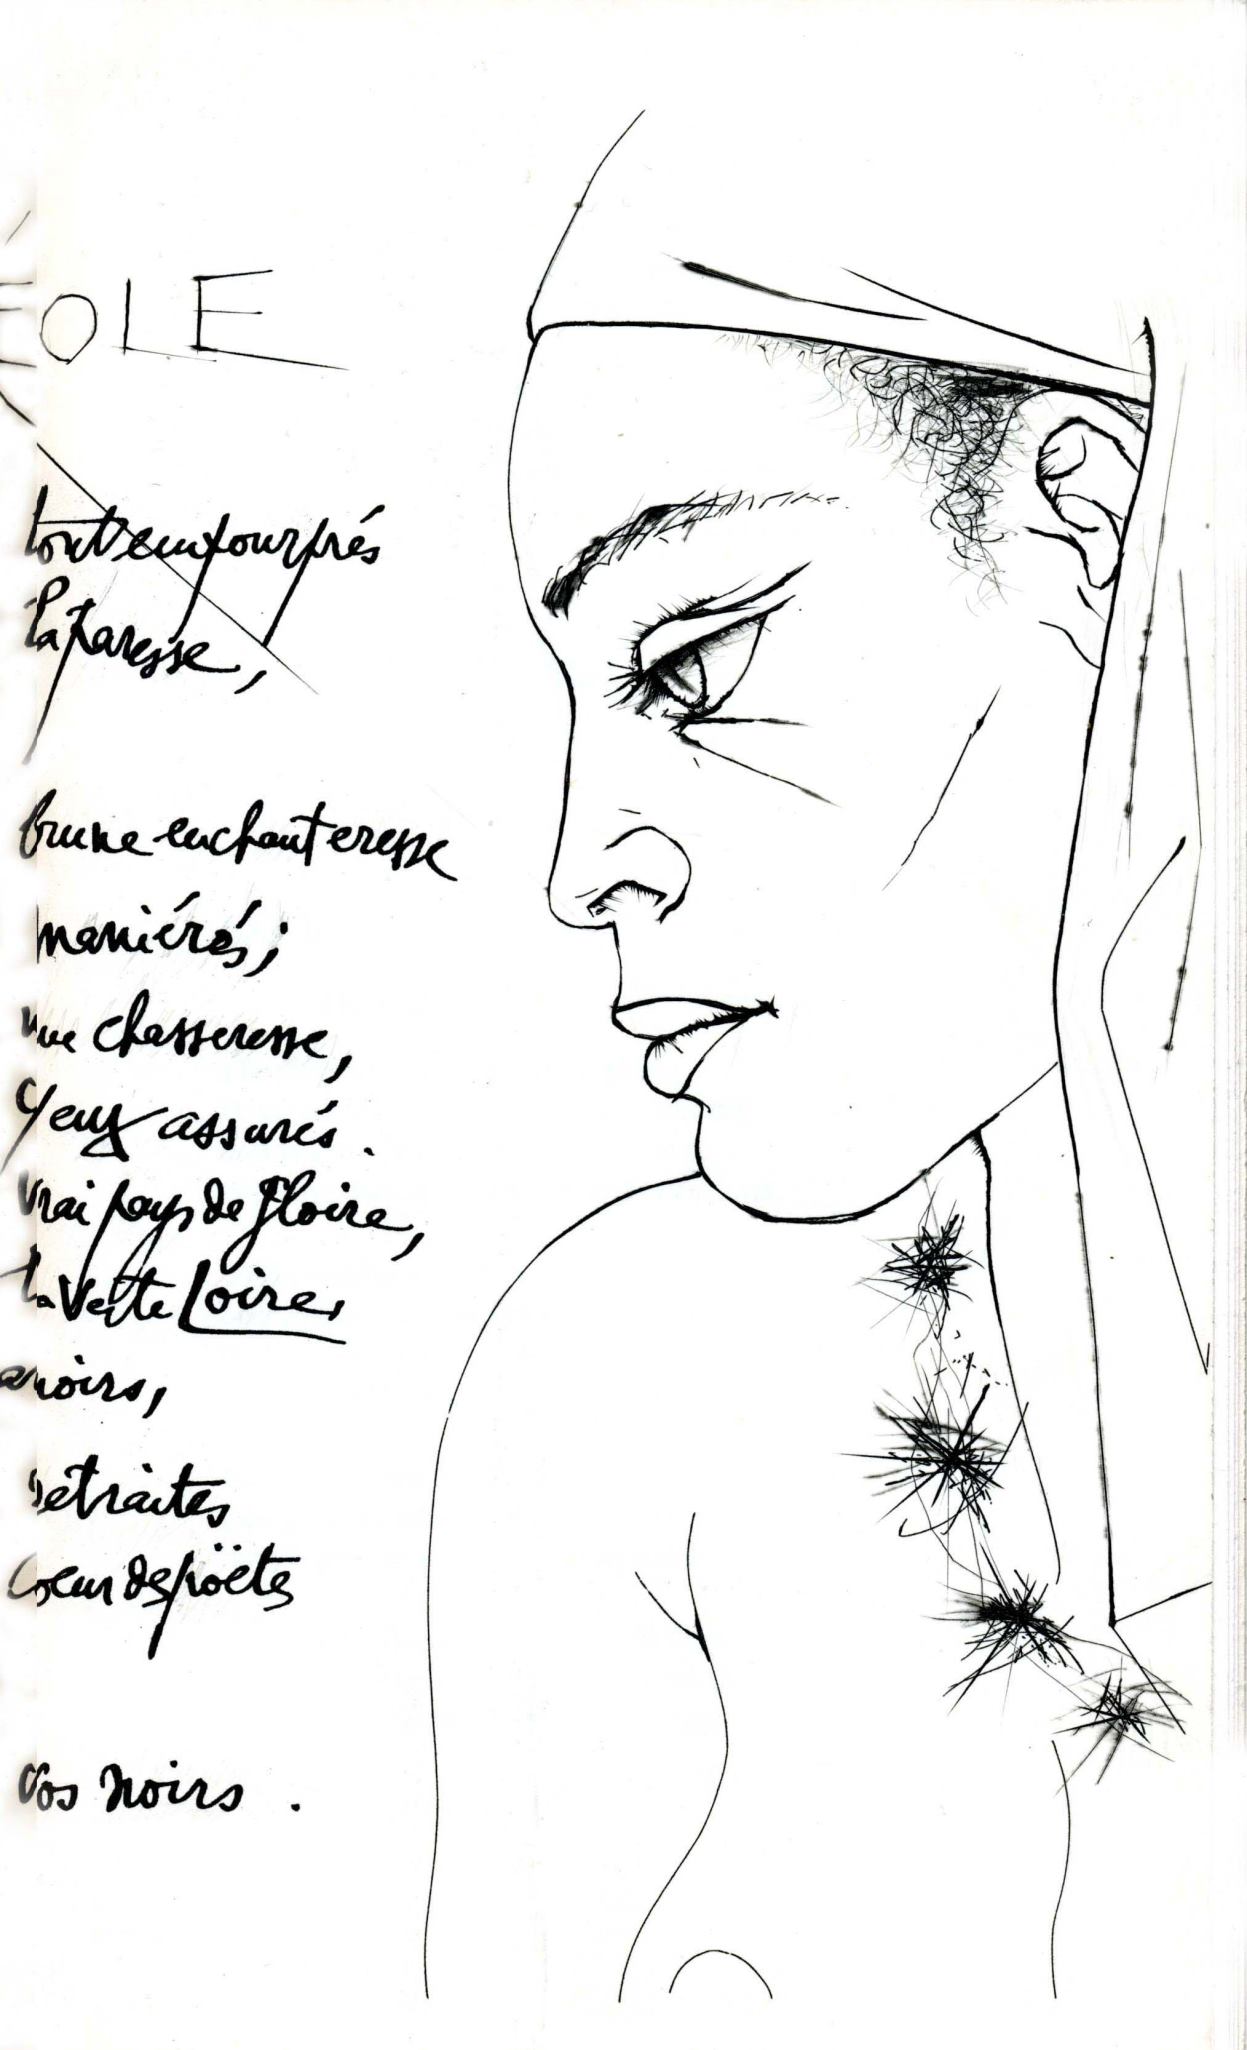 ÉOLE
tout empourprés
la paresse,
brune enchanteresse
maniérés;
une chasseresse,
yeux assurés.
vrai pays de gloire,
la verte Loire,
anoirs,
retraites
coeur des poëtes
vos noirs.